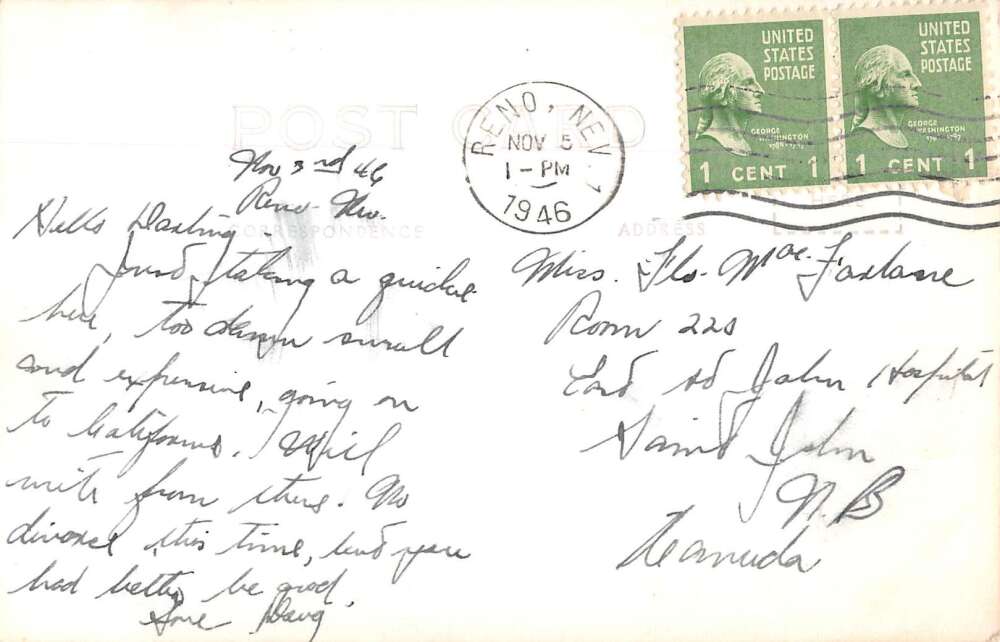 UNITED
STATES
POSTAGE
GEORGE
WASHINGTON
1 CENT 1
UNITED
STATES
POSTAGE
GEORGE
WASHINGTON
1 CENT 1
RENO, NEV.
NOV 5
1-PM
1946
POST CARD
CORRESPONDENCE
ADDRESS
HERE
Nov 3rd 46
Reno - Nev.
Hello Darling
Just taking a quickie
here, too damn small
and expensive, going on
to California. Will
write from there. No
divorce this time, but you
had better be good.
Love Doug
Miss. Flo. Mac Farlane
Room 220
East Sd John Hospital
Saint John
N.B
Canada